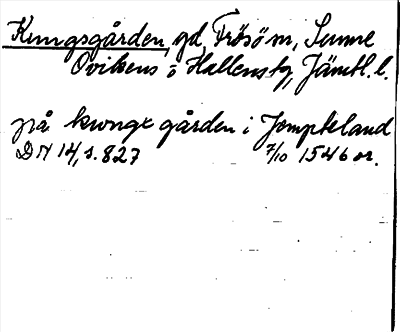 Kungsgården, gd, Frösö sn, Sunne
Ovikens o Hallens tg, Jämtl. l.
på kwnge gården i Jempteland
DN 14, s. 827 7/10 1546 or.